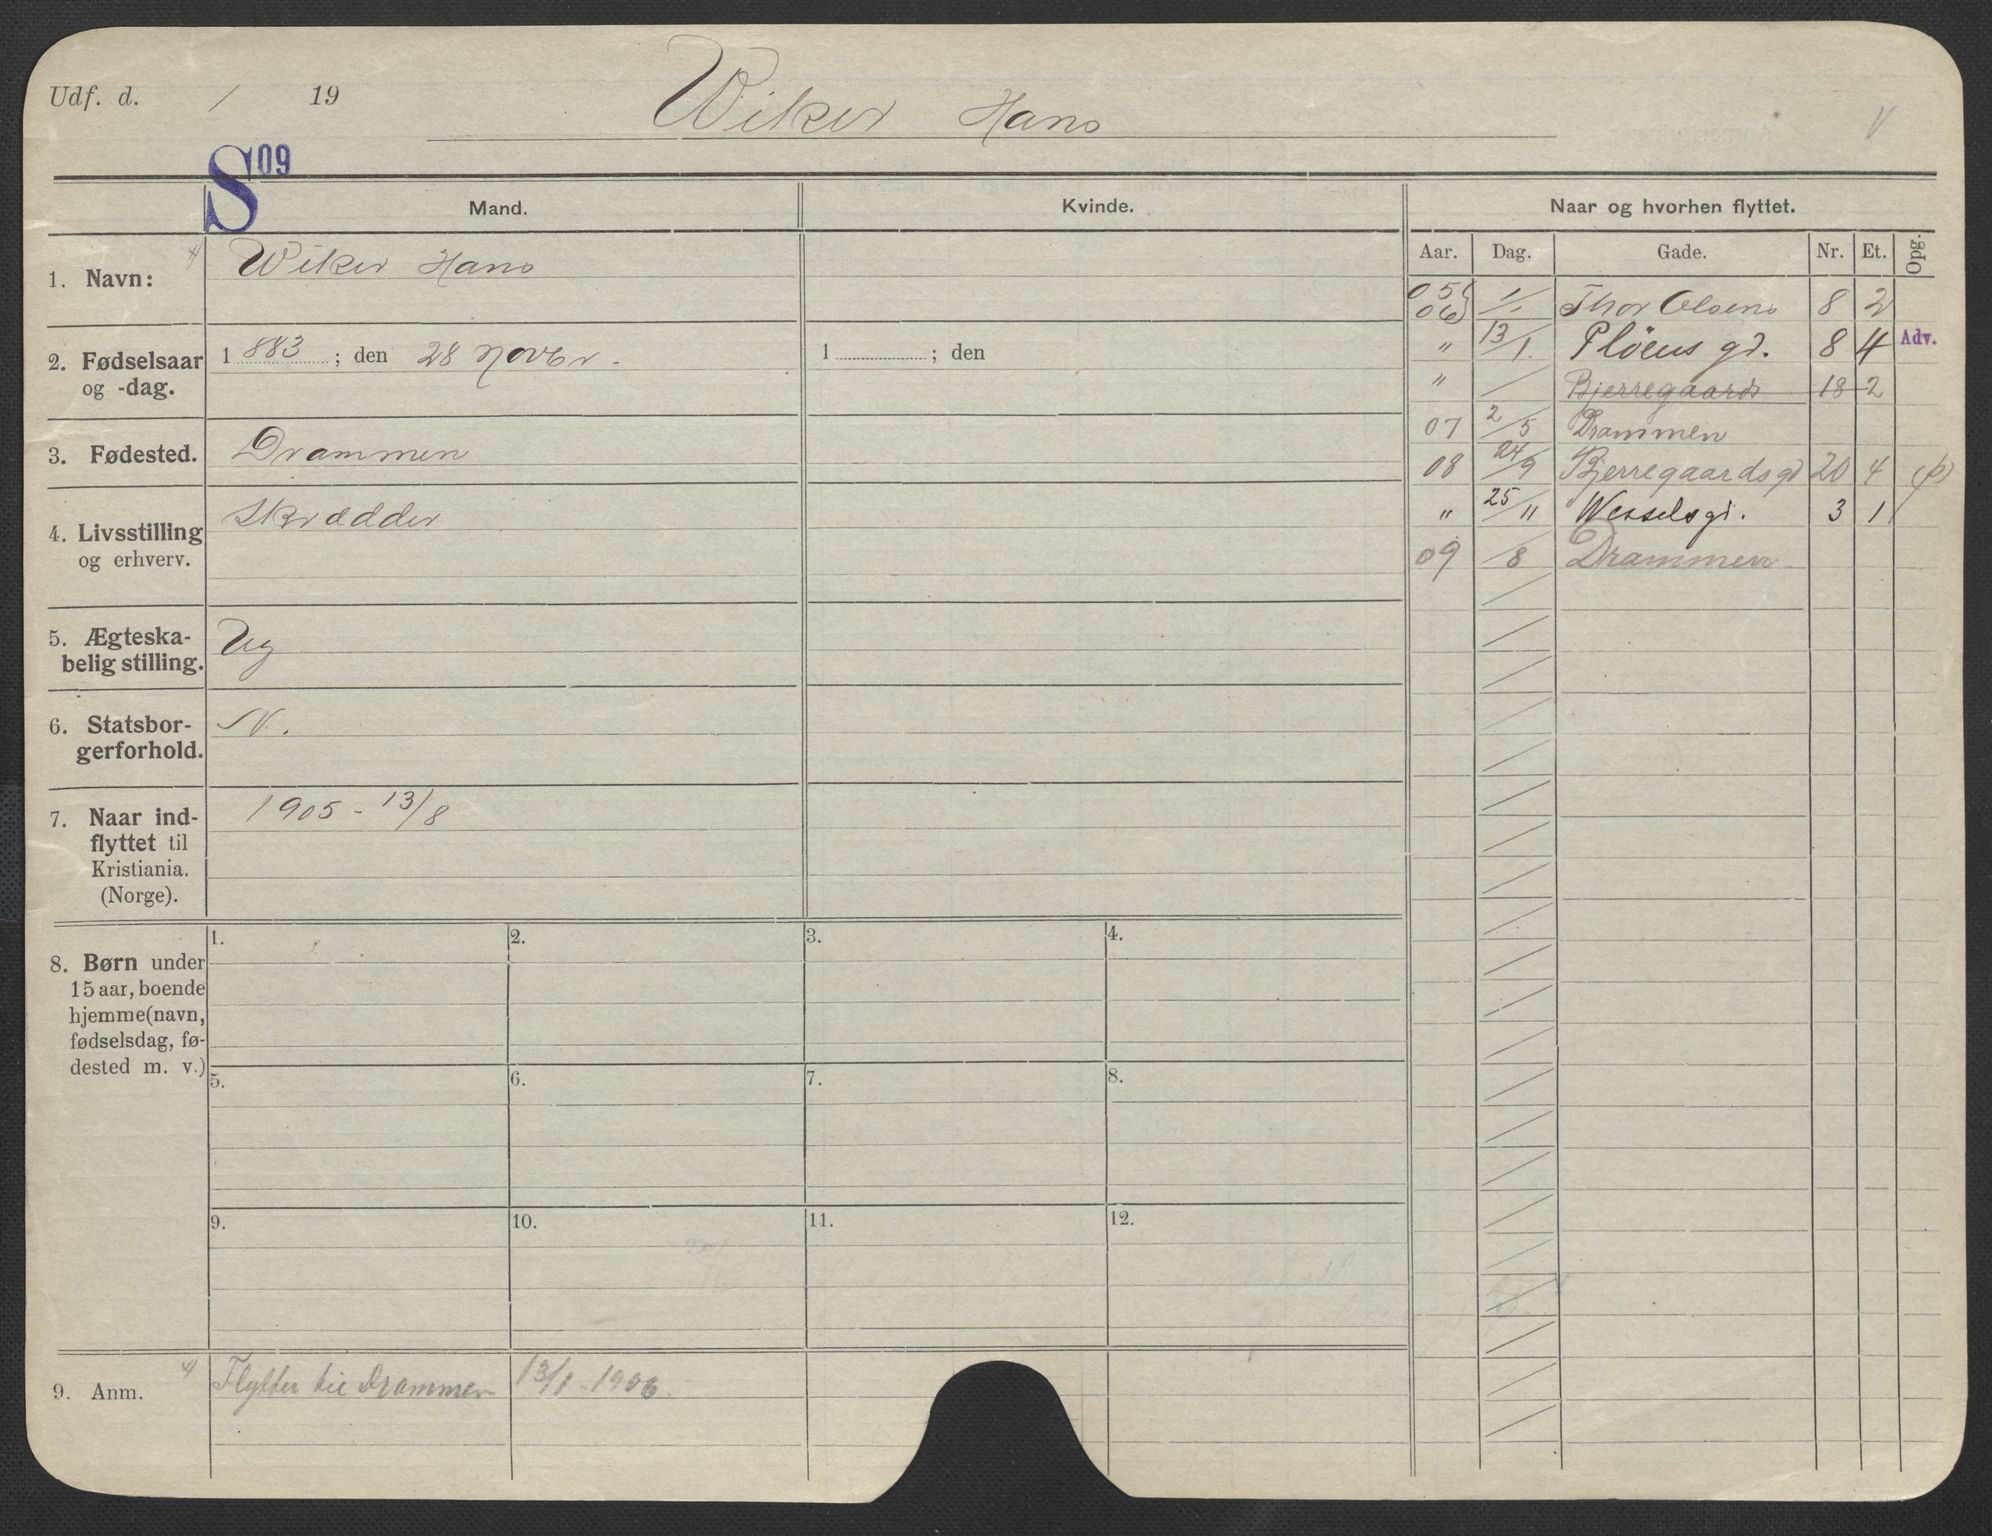 Udf. d. / 19
Wiker Hans
V
S 09
Mand.
Kvinde.
Naar og hvorhen flyttet.
Aar. Dag. Gade. Nr. Et. Opg.
1. Navn:
Wiker Hans
2. Fødselsaar
og -dag.
1 883 ; den 28 Novbr.
1 ; den
3. Fødested.
Drammen
4. Livsstilling
og erhverv.
Skrædder
5. Ægteska-
belig stilling.
Ug
6. Statsbor-
gerforhold.
N.
7. Naar ind-
flyttet til
Kristiania.
(Norge).
1905 - 13/8
05} / Thor Olsens 8 2
06}
" 13/1. Plöens gd. 8 4 Adv.
" / Bjerregaards 18 2
07 2/5 Drammen
08 24/9 Bjerregaardsgd 20 4 (p)
" 25/11 Wesselsgd. 3 1
09 /8 Drammen
8. Børn under
15 aar, boende
hjemme (navn,
fødselsdag, fø-
dested m. v.)
1. 2. 3. 4.
5. 6. 7. 8.
9. 10. 11. 12.
9. Anm.
Flytter til Drammen 13/1 - 1906.